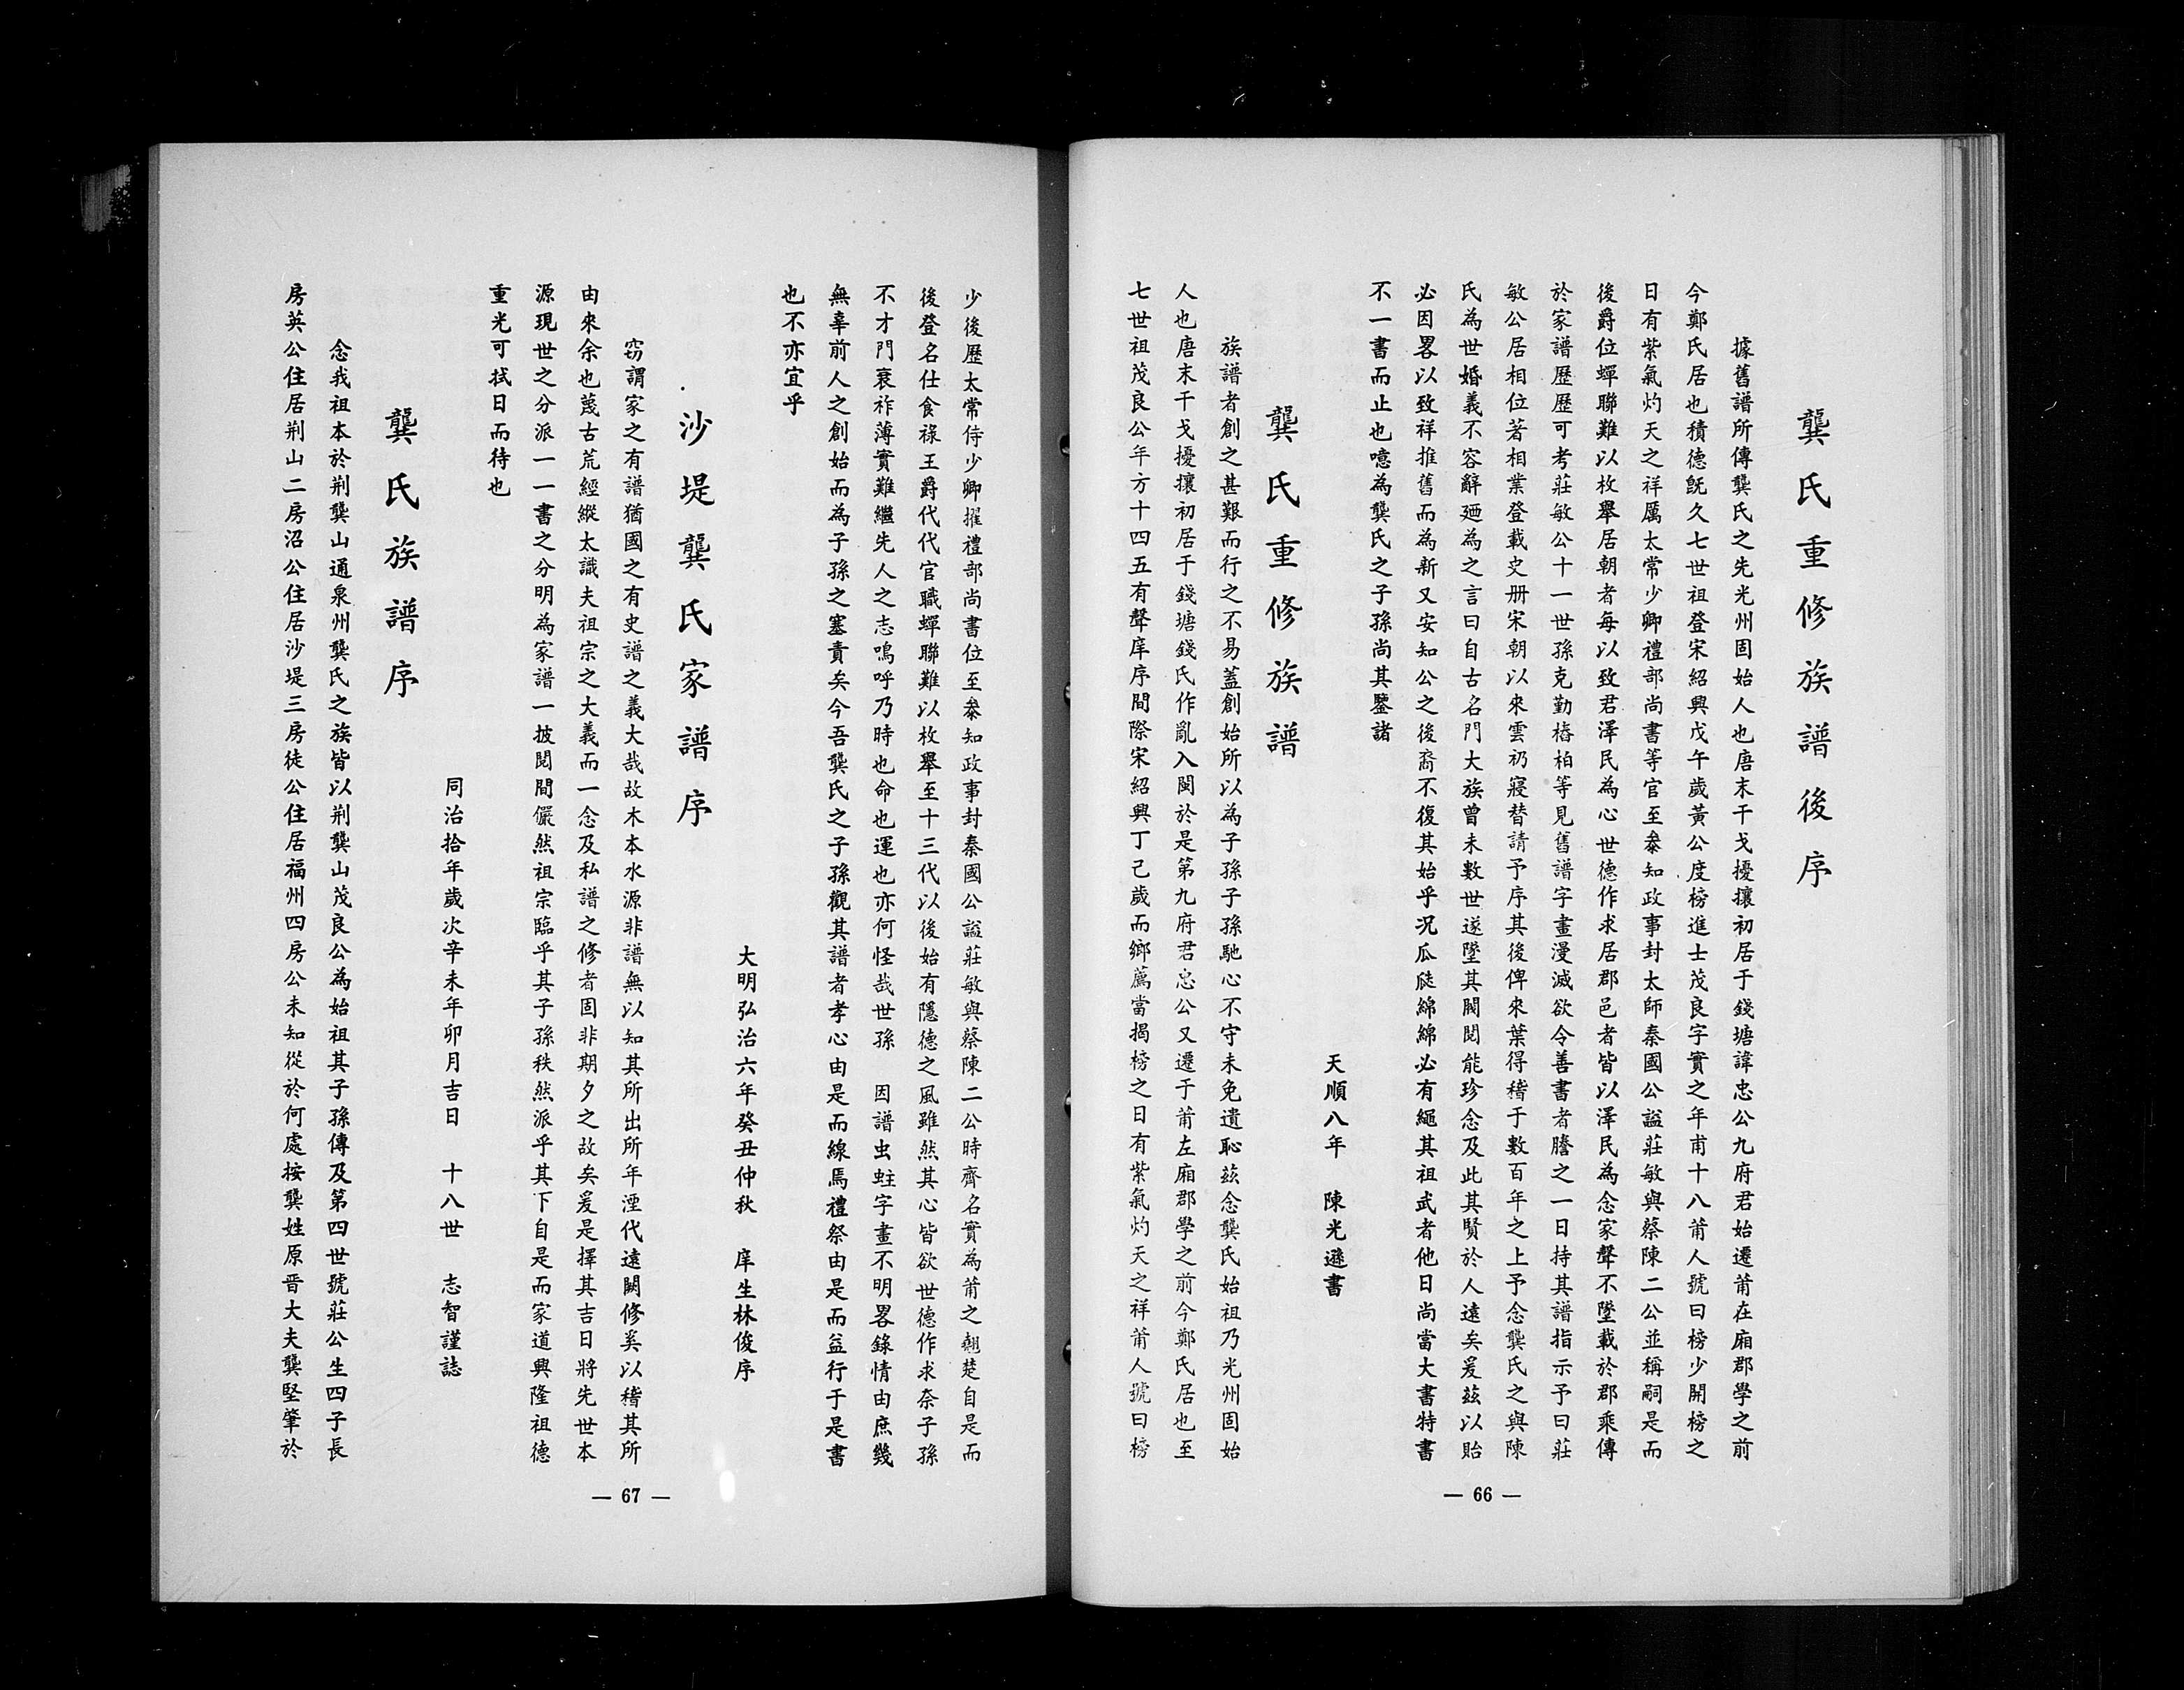 龔氏重修族譜後序
據舊譜所傳龔氏之先光州固始人也唐末干戈擾攘初居于錢塘諱忠公九府君始遷莆在廂郡學之前
今鄭氏居也積德既久七世祖登宋紹興戊午歲黃公度榜進士茂良字實之年甫十八莆人號曰榜少開榜之
日有紫氣灼天之祥厲太常少卿禮部尚書等官至叅知政事封太師秦國公諡莊敏與蔡陳二公並稱嗣是而
後爵位蟬聯難以枚舉居朝者每以致君澤民為心世德作求居郡邑者皆以澤民為念家聲不墜載於郡乘傳
於家譜歷歷可考莊敏公十一世孫克勤椿柏等見舊譜字畫漫滅欲令善書者謄之一日持其譜指示予曰莊
敏公居相位著相業登載史册宋朝以來雲礽寢替請予序其後俾來葉得稽于數百年之上予念龔氏之與陳
氏為世婚義不容辭廼為之言曰自古名門大族曾未數世遂墜其閥閱能珍念及此其賢於人遠矣爰茲以貽
必因畧以致祥推舊而為新又安知公之後裔不復其始乎况瓜瓞綿綿必有繩其祖武者他日尚當大書特書
不一書而止也噫為龔氏之子孫尚其鑒諸
天順八年　陳光遜書
龔氏重修族譜
族譜者創之甚艱而行之不易蓋創始所以為子孫子孫馳心不守未免遺恥茲念龔氏始祖乃光州固始
人也唐末干戈擾攘初居于錢塘錢氏作亂入閩於是第九府君忠公又遷于莆左廂郡學之前今鄭氏居也至
七世祖茂良公年方十四五有聲庠序間際宋紹興丁己歲而鄉薦當揭榜之日有紫氣灼天之祥莆人號曰榜
— 66 —
少後歷太常侍少卿擢禮部尚書位至叅知政事封秦國公諡莊敏與蔡陳二公時齊名實為莆之翹楚自是而
後登名仕食祿王爵代代官職蟬聯難以枚舉至十三代以後始有隱德之風雖然其心皆欲世德作求奈子孫
不才門衰祚薄實難繼先人之志嗚呼乃時也命也運也亦何怪哉世孫　因譜虫蛀字畫不明畧錄情由庶幾
無辜前人之創始而為子孫之塞責矣今吾龔氏之子孫觀其譜者孝心由是而線馬禮祭由是而益行于是書
也不亦宜乎
大明弘治六年癸丑仲秋　庠生林俊序
沙堤龔氏家譜序
窃謂家之有譜猶國之有史譜之義大哉故木本水源非譜無以知其所出所年湮代遠闕修奚以稽其所
由來余也蔑古荒經縱太識夫祖宗之大義而一念及私譜之修者固非期夕之故矣爰是擇其吉日將先世本
源現世之分派一一書之分明為家譜一披閱間儼然祖宗臨乎其子孫秩然派乎其下自是而家道興隆祖德
重光可拭日而待也
同治拾年歲次辛未年卯月吉日　十八世　志智謹誌
龔氏族譜序
念我祖本於荆龔山通泉州龔氏之族皆以荆龔山茂良公為始祖其子孫傳及第四世號莊公生四子長
房英公住居荆山二房沼公住居沙堤三房徒公住居福州四房公未知從於何處按龔姓原晋大夫龔堅肇於
— 67 —